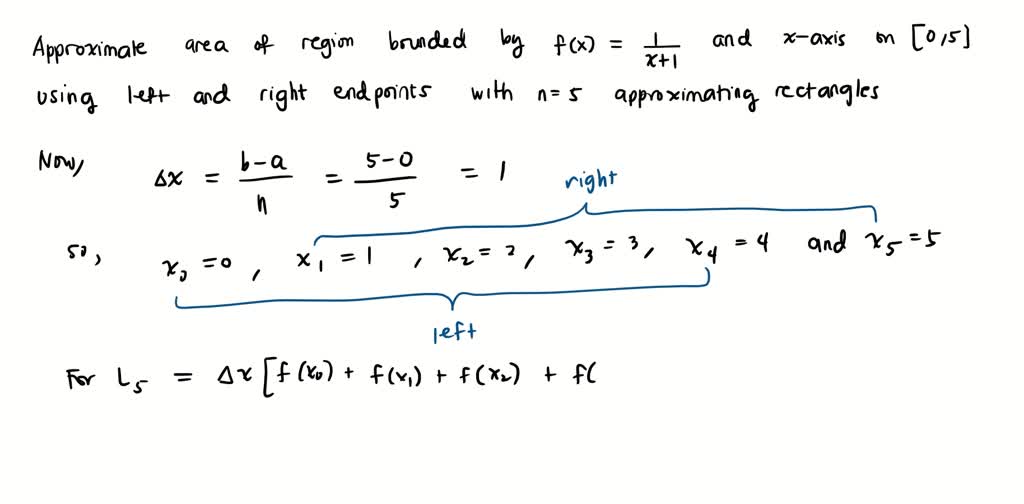 Approximate area of region bounded by f(x) = 1/(x+1) and x-axis on [0,5]
using left and right endpoints with n=5 approximating rectangles
Now, Δx = (b-a)/n = (5-0)/5 = 1
right
so, x₀=0, x₁=1, x₂=2, x₃=3, x₄=4 and x₅=5
left
For L₅ = Δx[f(x₀) + f(x₁) + f(x₂) + f(